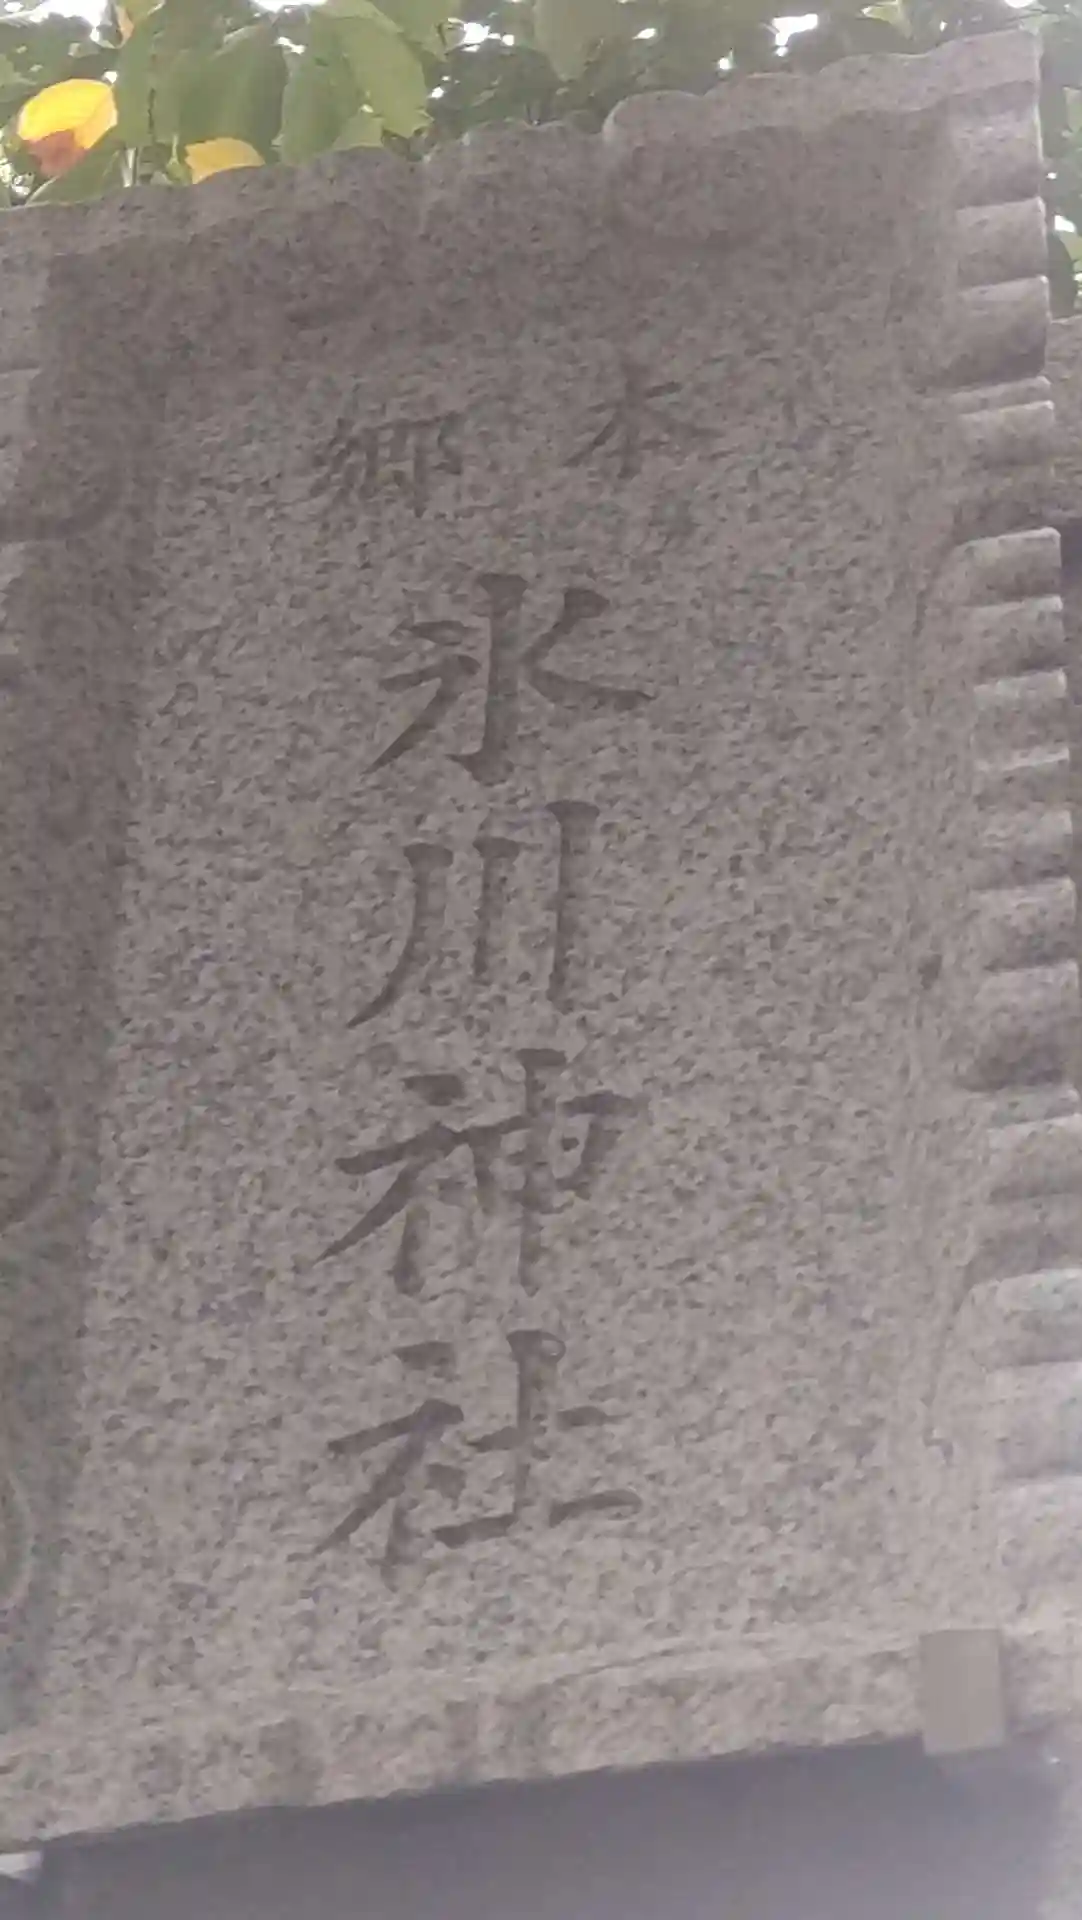 本郷
氷川神社